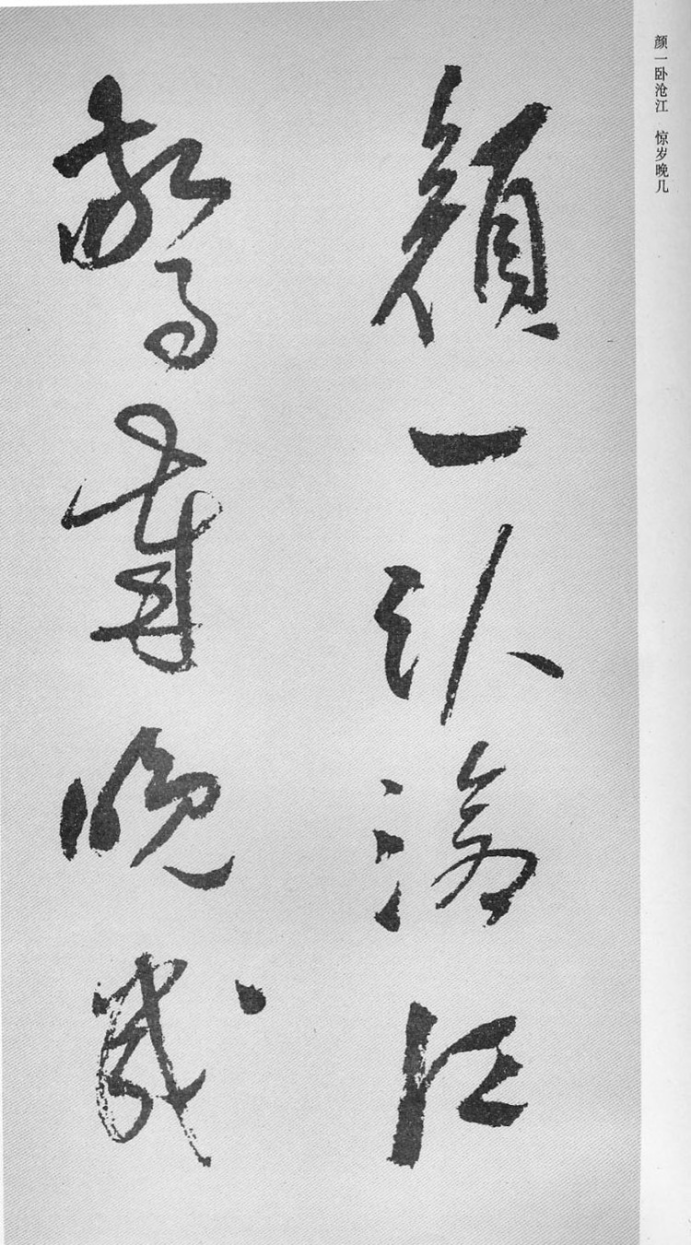 颜一卧沧江 惊岁晚几
顔一卧滄江
驚歳晚幾